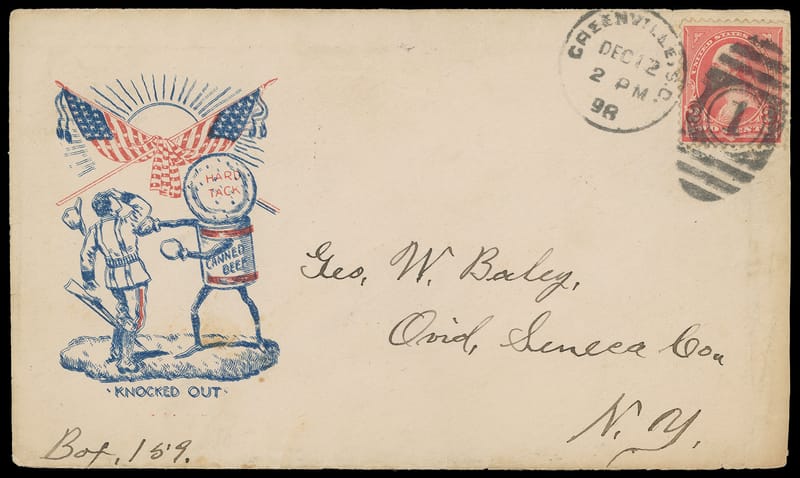 GREENVILLE, S.C.
DEC 12
2 PM
98
UNITED STATES
TWO CENTS
1
HARD
TACK
CANNED
BEEF
KNOCKED OUT
Geo. W. Baley,
Ovid, Seneca Co.
N. Y.
Box. 159.